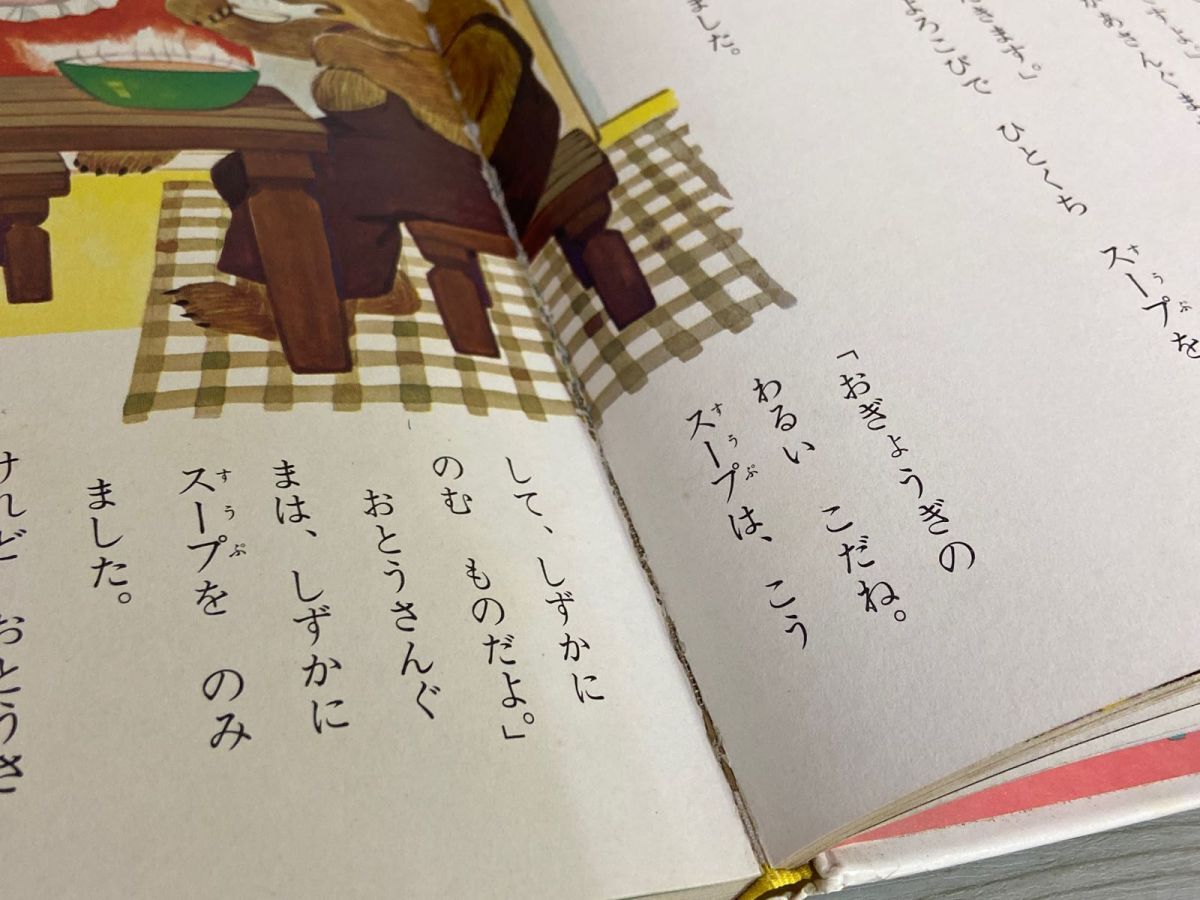 ひとくち スープを
ました。
「おぎょうぎの
わるい こだね。
スープは、こう
して、しずかに
のむ ものだよ。」
おとうさんぐ
まは、しずかに
スープを のみ
ました。
けれど おとうさ